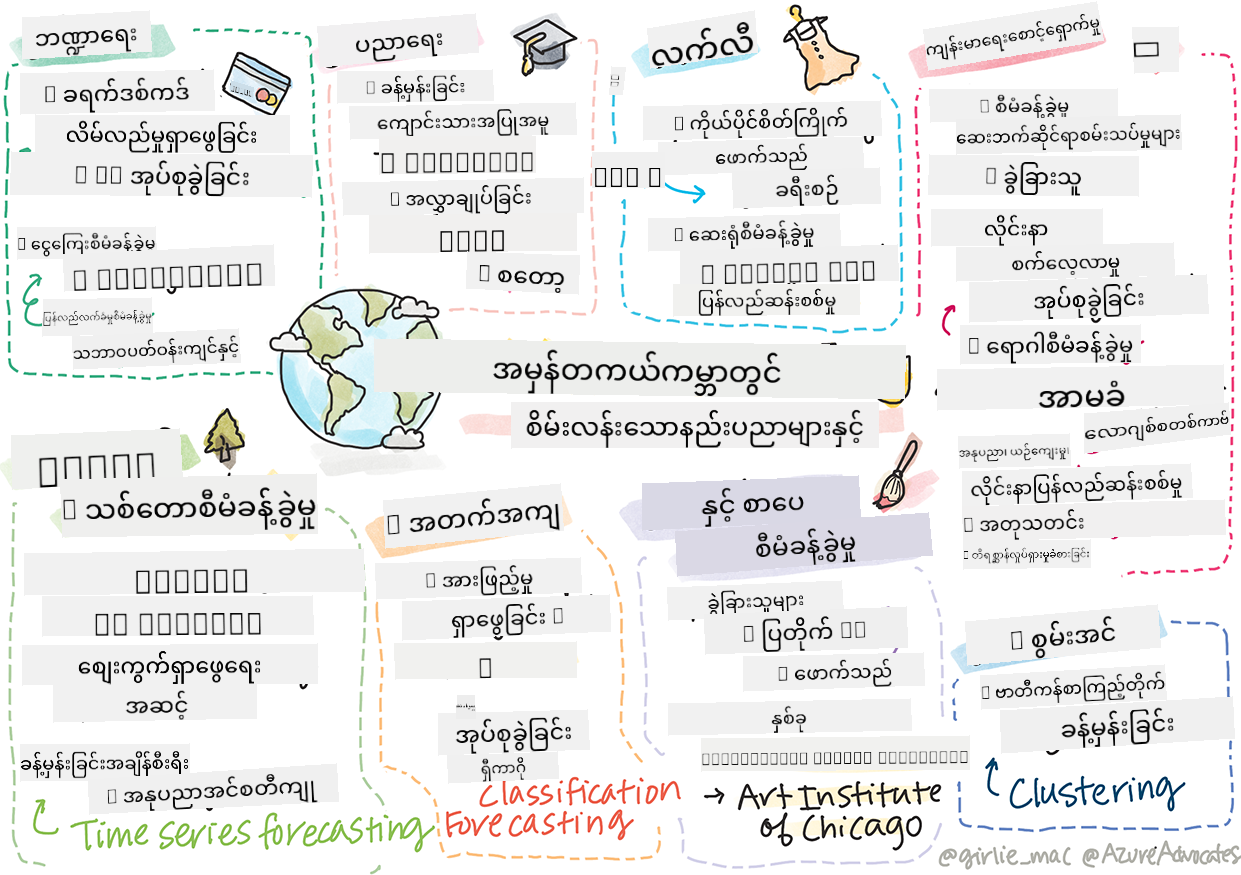 ဘဏ္ဍာရေး
ခရက်ဒစ်ကဒ်
လိမ်လည်မှုရှာဖွေခြင်း
အုပ်စုခွဲခြင်း
ငွေကြေးစီမံခန့်ခွဲမှု
ပြန်လည်လက်ခံမှုစီမံခန့်ခွဲမှု
သဘာဝပတ်ဝန်းကျင်နှင့်
ပညာရေး
ခန့်မှန်းခြင်း
ကျောင်းသားအပြုအမူ
အလွှာချုပ်ခြင်း
စတော့
လက်လီ
ကိုယ်ပိုင်စိတ်ကြိုက်
ဖောက်သည်
ခရီးစဉ်
ဆေးရုံစီမံခန့်ခွဲမှု
ပြန်လည်ဆန်းစစ်မှု
ကျန်းမာရေးစောင့်ရှောက်မှု
စီမံခန့်ခွဲမှု
ဆေးဘက်ဆိုင်ရာစမ်းသပ်မှုများ
ခွဲခြားသူ
လိုင်းနာ
စက်လေ့လာမှု
အုပ်စုခွဲခြင်း
ရောဂါစီမံခန့်ခွဲမှု
အာမခံ
လောဂျစ်စတစ်ကာဗ်
အနုပညာ၊ ယဉ်ကျေးမှု၊
လိုင်းနာပြန်လည်ဆန်းစစ်မှု
အတုသတင်း
တိရစ္ဆာန်လှုပ်ရှားမှုခံစားခြင်း
အမှန်တကယ်ကမ္ဘာတွင်
စိမ်းလန်းသောနည်းပညာများနှင့်
သစ်တောစီမံခန့်ခွဲမှု
ဈေးကွက်ရှာဖွေရေး
အဆင့်
ခန့်မှန်းခြင်းအချိန်စီးရီး
အနုပညာအင်စတီကျု
Time series forecasting
အတက်အကျ
အားဖြည့်မှု
ရှာဖွေခြင်း
အုပ်စုခွဲခြင်း
ရှီကာဂို
Classification
Forecasting
နှင့် စာပေ
စီမံခန့်ခွဲမှု
ခွဲခြားသူများ
ပြတိုက်
ဖောက်သည်
နှစ်ခု
→ Art Institute
of Chicago
စွမ်းအင်
ဗာတီကန်စာကြည့်တိုက်
ခန့်မှန်းခြင်း
Clustering
@girlie_mac @AzureAdvocates